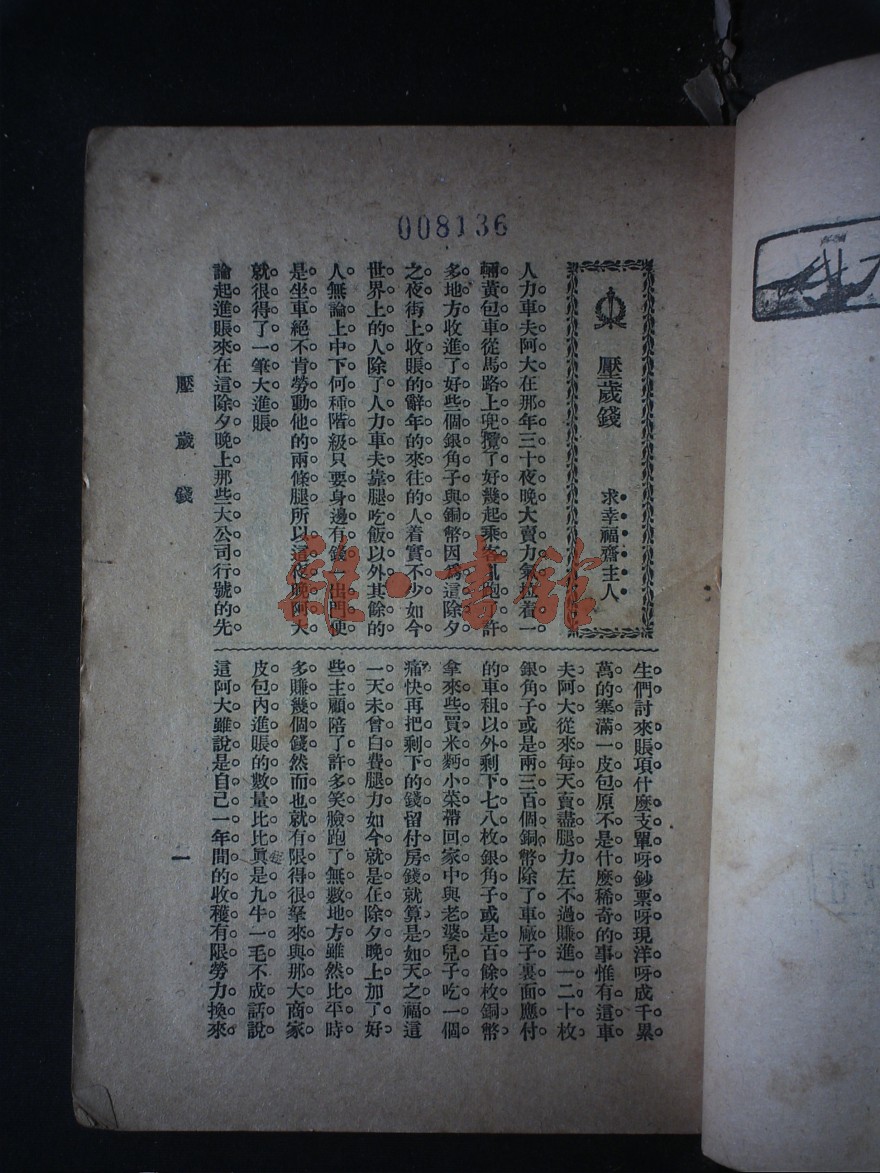 008136
壓歲錢
求幸福齋主人
人力車夫阿大在那年三十夜晚大賣力氣拉着一
輛黃包車從馬路上兜攬了好幾起乘客亂跑許
多地方收進了好些個銀角子與銅幣因爲這除夕
之夜街上收賬的辭年的來往的人着實不少如今
世界上的人除了人力車夫靠腿吃飯以外其餘的
人無論上中下何種階級只要身邊有錢一出門便
是坐車絕不肯勞動他的兩條腿所以這夜晚阿大
就很得了一筆大進賬
論起進賬來在這除夕晚上那些大公司行號的先
生們討來賬項什麼支單呀鈔票呀現洋呀成千累
萬的塞滿一皮包原不是什麼稀奇的事惟有這車
夫阿大從來每天賣盡腿力左不過賺進一二十枚
銀角子或是兩三百個銅幣除了車廠子裏面應付
的車租以外剩下七八枚銀角子或是百餘枚銅幣
拿來些買米麪小菜帶回家中與老婆兒子吃一個
痛快再把剩下的錢留付房錢就算是如天之福這
一天未曾白費腿力如今就是在除夕晚上加了好
些主顧陪了許多笑臉跑了無數地方雖然比平時
多賺幾個錢然而也就有限得很拏來與那大商家
皮包內進賬的數量比比眞是九牛一毛不成話說
這阿大雖說是自己一年間的收穫有限勞力換來
壓歲錢
一
雜·書館